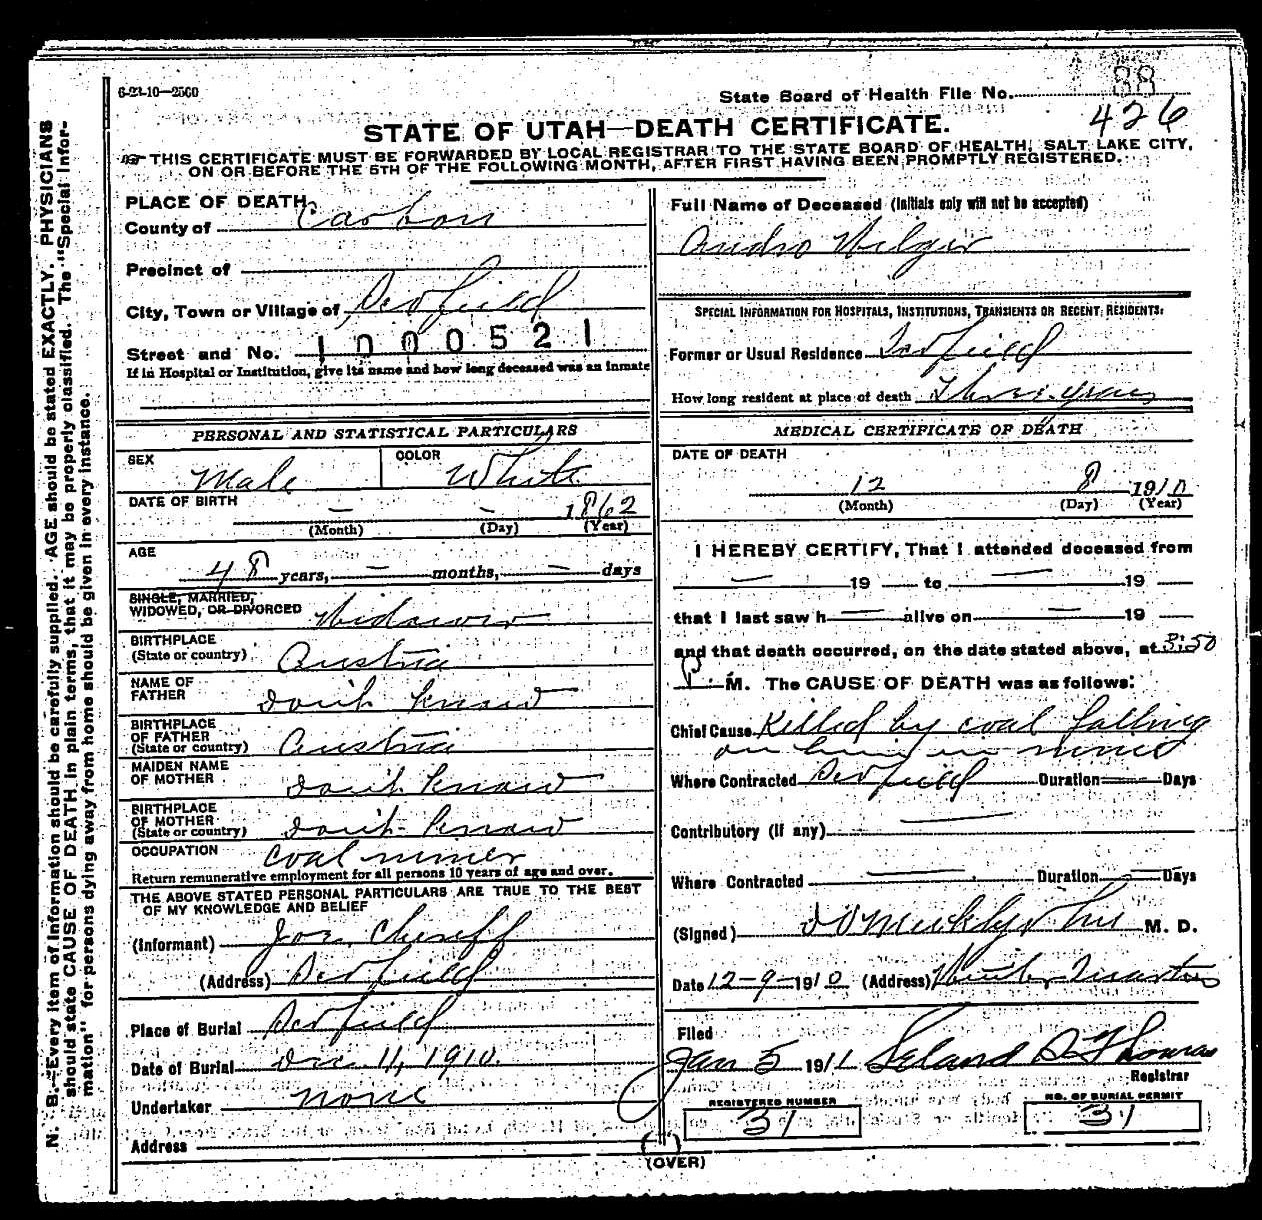 6-23-10—2500
State Board of Health File No. 38
426
STATE OF UTAH—DEATH CERTIFICATE.
THIS CERTIFICATE MUST BE FORWARDED BY LOCAL REGISTRAR TO THE STATE BOARD OF HEALTH, SALT LAKE CITY,
ON OR BEFORE THE 5TH OF THE FOLLOWING MONTH, AFTER FIRST HAVING BEEN PROMPTLY REGISTERED.
N. B.—Every item of information should be carefully supplied. AGE should be stated EXACTLY. PHYSICIANS
should state CAUSE OF DEATH in plain terms, that it may be properly classified. The "Special Infor-
mation" for persons dying away from home should be given in every instance.
PLACE OF DEATH
County of Carbon
Precinct of
City, Town or Village of Scofield
Street and No. 1000521
If in Hospital or Institution, give its name and how long deceased was an inmate
PERSONAL AND STATISTICAL PARTICULARS
SEX Male COLOR White
DATE OF BIRTH — — 1862
(Month) (Day) (Year)
AGE
48 years, — months, — days
SINGLE, MARRIED,
WIDOWED, OR DIVORCED Widower
BIRTHPLACE
(State or country) Austria
NAME OF
FATHER Don't know
BIRTHPLACE
OF FATHER
(State or country) Austria
MAIDEN NAME
OF MOTHER Don't know
BIRTHPLACE
OF MOTHER
(State or country) Don't know
OCCUPATION Coal miner
Return remunerative employment for all persons 10 years of age and over.
THE ABOVE STATED PERSONAL PARTICULARS ARE TRUE TO THE BEST
OF MY KNOWLEDGE AND BELIEF
(Informant) Joe
(Address) Scofield
Place of Burial Scofield
Date of Burial Dec. 11, 1910.
Undertaker None
Address
Full Name of Deceased (Initials only will not be accepted)
Andro Hilger
SPECIAL INFORMATION FOR HOSPITALS, INSTITUTIONS, TRANSIENTS OR RECENT RESIDENTS:
Former or Usual Residence Scofield
How long resident at place of death Three years
MEDICAL CERTIFICATE OF DEATH
DATE OF DEATH
12 8 1910
(Month) (Day) (Year)
I HEREBY CERTIFY, That I attended deceased from
— 19 — to — 19 —
that I last saw h — alive on — 19 —
and that death occurred, on the date stated above, at 3:50
P. M. The CAUSE OF DEATH was as follows:
Chief Cause Killed by coal falling
on him in mine
Where Contracted Scofield Duration — Days
Contributory (If any) —
Where Contracted — Duration — Days
(Signed) M. D.
Date 12-9-1910 (Address) Winter Quarters
Filed
Jan 5 1911 Leland S. Thomas
Registrar
REGISTERED NUMBER
31
NO. OF BURIAL PERMIT
31
(OVER)